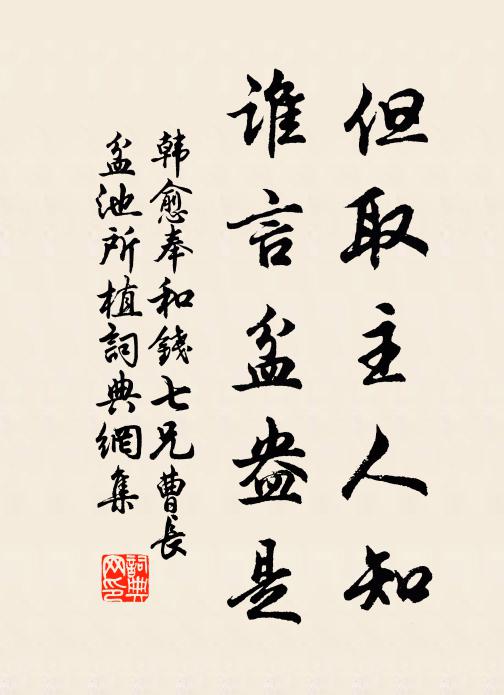 但取主人知
谁言盆盎是
韩愈奉和錢七兄曹長
盆池所植詞典網集
詞典
网印